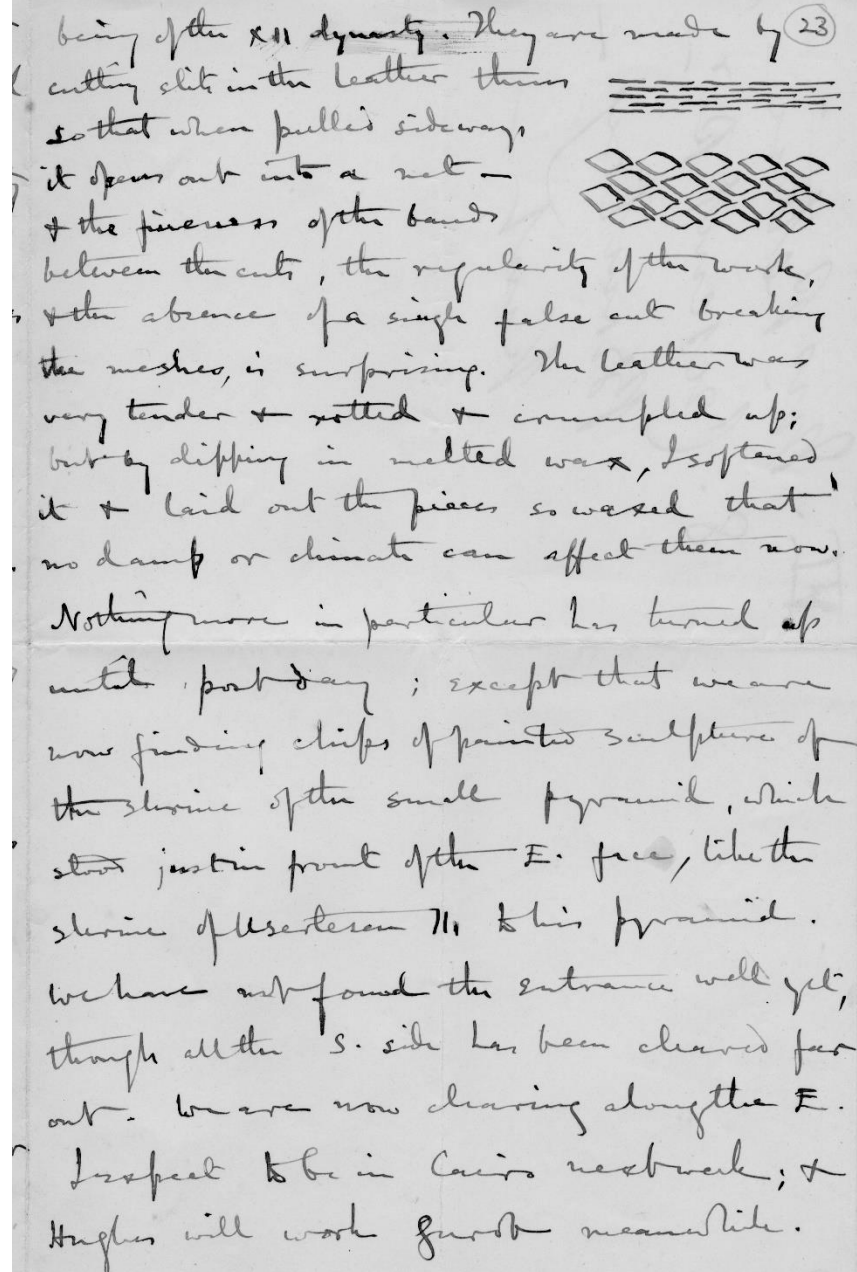 being of the XII dynasty. They are made by 23
cutting slits in the leather thus
so that when pulled sideways
it opens out into a net —
& the fineness of the bands
between the cuts, the regularity of the work,
& the absence of a single false cut breaking
the meshes, is surprising. The leather was
very tender & rotted & crumpled up;
but by dipping in melted wax, I softened
it & laid out the pieces so waxed that
no damp or climate can affect them now.
Nothing more in particular has turned up
until post day; except that we are
now finding chips of painted sculpture of
the shrine of the small pyramid, which
stood just in front of the E. face, like the
shrine of Usertesen II, to his pyramid.
We have not found the entrance well yet,
though all the S. side has been cleared far
out. We are now clearing along the E.
I expect to be in Cairo next week; &
Hughes will work Gurob meanwhile.